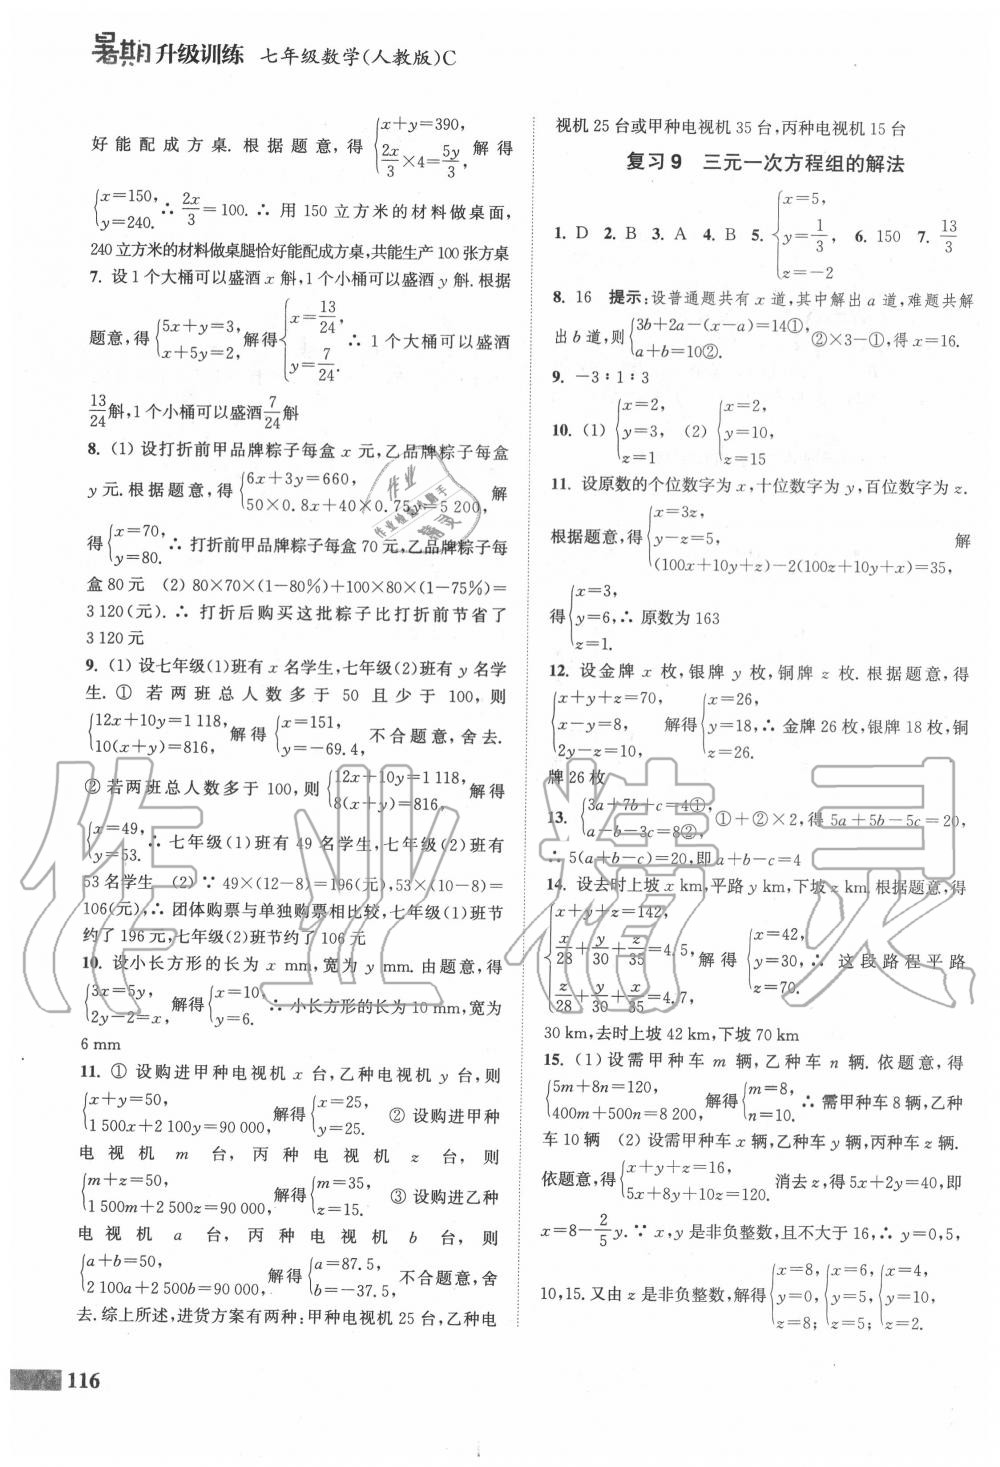 暑期升级训练 七年级数学(人教版)C
好能配成方桌.根据题意,得{x+y=390, 2x/3×4=5y/3, 解得
{x=150, y=240. ∴2x/3=100.∴用150立方米的材料做桌面,
240立方米的材料做桌腿恰好能配成方桌,共能生产100张方桌
7. 设1个大桶可以盛酒x斛,1个小桶可以盛酒y斛.根据
题意,得{5x+y=3, x+5y=2, 解得{x=13/24, y=7/24. ∴1个大桶可以盛酒
13/24斛,1个小桶可以盛酒7/24斛
8. (1)设打折前甲品牌粽子每盒x元,乙品牌粽子每盒
y元.根据题意,得{6x+3y=660, 50×0.8x+40×0.75y=5 200, 解
得{x=70, y=80. ∴打折前甲品牌粽子每盒70元,乙品牌粽子每
盒80元 (2)80×70×(1-80%)+100×80×(1-75%)=
3 120(元).∴打折后购买这批粽子比打折前节省了
3 120元
9. (1)设七年级(1)班有x名学生,七年级(2)班有y名学
生.① 若两班总人数多于50且少于100,则
{12x+10y=1 118, 10(x+y)=816, 解得{x=151, y=-69.4, 不合题意,舍去.
② 若两班总人数多于100,则{12x+10y=1 118, 8(x+y)=816, 解得
{x=49, y=53. ∴七年级(1)班有49名学生,七年级(2)班有
53名学生 (2)∵49×(12-8)=196(元),53×(10-8)=
106(元),∴团体购票与单独购票相比较,七年级(1)班节
约了196元,七年级(2)班节约了106元
10. 设小长方形的长为x mm,宽为y mm.由题意,得
{3x=5y, 2y-2=x, 解得{x=10, y=6. ∴小长方形的长为10 mm,宽为
6 mm
11. ① 设购进甲种电视机x台,乙种电视机y台,则
{x+y=50, 1 500x+2 100y=90 000, 解得{x=25, y=25. ② 设购进甲种
电视机m台,丙种电视机z台,则
{m+z=50, 1 500m+2 500z=90 000, 解得{m=35, z=15. ③ 设购进乙种
电视机a台,丙种电视机b台,则
{a+b=50, 2 100a+2 500b=90 000, 解得{a=87.5, b=-37.5, 不合题意,舍
去.综上所述,进货方案有两种:甲种电视机25台,乙种电
视机25台或甲种电视机35台,丙种电视机15台
复习9 三元一次方程组的解法
1. D 2. B 3. A 4. B 5. {x=5, y=1/3, z=-2 6. 150 7. 13/3
8. 16 提示:设普通题共有x道,其中解出a道,难题共解
出b道,则{3b+2a-(x-a)=14①, a+b=10②. ②×3-①,得x=16.
9. -3∶1∶3
10. (1){x=2, y=3, z=1 (2){x=2, y=10, z=15
11. 设原数的个位数字为x,十位数字为y,百位数字为z.
根据题意,得{x=3z, y-z=5, (100x+10y+z)-2(100z+10y+x)=35, 解
得{x=3, y=6, z=1. ∴原数为163
12. 设金牌x枚,银牌y枚,铜牌z枚.根据题意,得
{x+y+z=70, x-y=8, 2y-z=10, 解得{x=26, y=18, z=26. ∴金牌26枚,银牌18枚,铜
牌26枚
13. {3a+7b+c=4①, a-b-3c=8②, ①+②×2,得5a+5b-5c=20,
∴5(a+b-c)=20,即a+b-c=4
14. 设去时上坡x km,平路y km,下坡z km.根据题意,得
{x+y+z=142, x/28+y/30+z/35=4.5, z/28+y/30+x/35=4.7, 解得{x=42, y=30, z=70. ∴这段路程平路
30 km,去时上坡42 km,下坡70 km
15. (1)设需甲种车m辆,乙种车n辆.依题意,得
{5m+8n=120, 400m+500n=8 200, 解得{m=8, n=10. ∴需甲种车8辆,乙种
车10辆 (2)设需甲种车x辆,乙种车y辆,丙种车z辆.
依题意,得{x+y+z=16, 5x+8y+10z=120. 消去z,得5x+2y=40,即
x=8-2/5y.∵x,y是非负整数,且不大于16,∴y=0,5,
10,15.又由z是非负整数,解得{x=8, y=0, z=8; {x=6, y=5, z=5; {x=4, y=10, z=2.
116
作业精灵